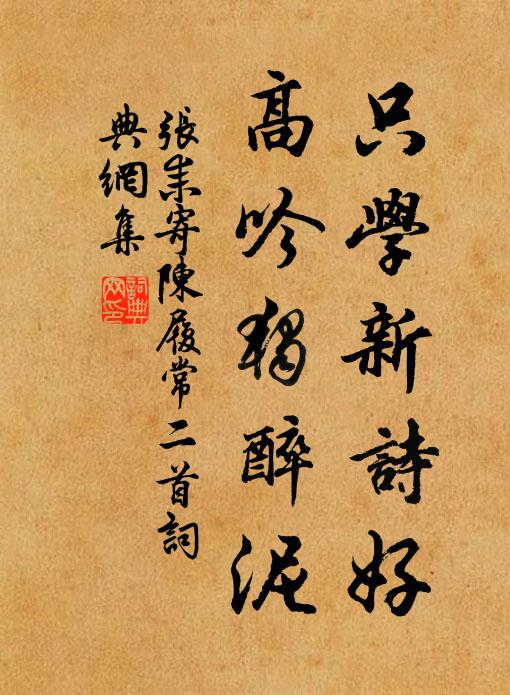 只學新詩好
高吟獨醉泥
張耒寄陳履常二首詞
典網集
詞典
网印